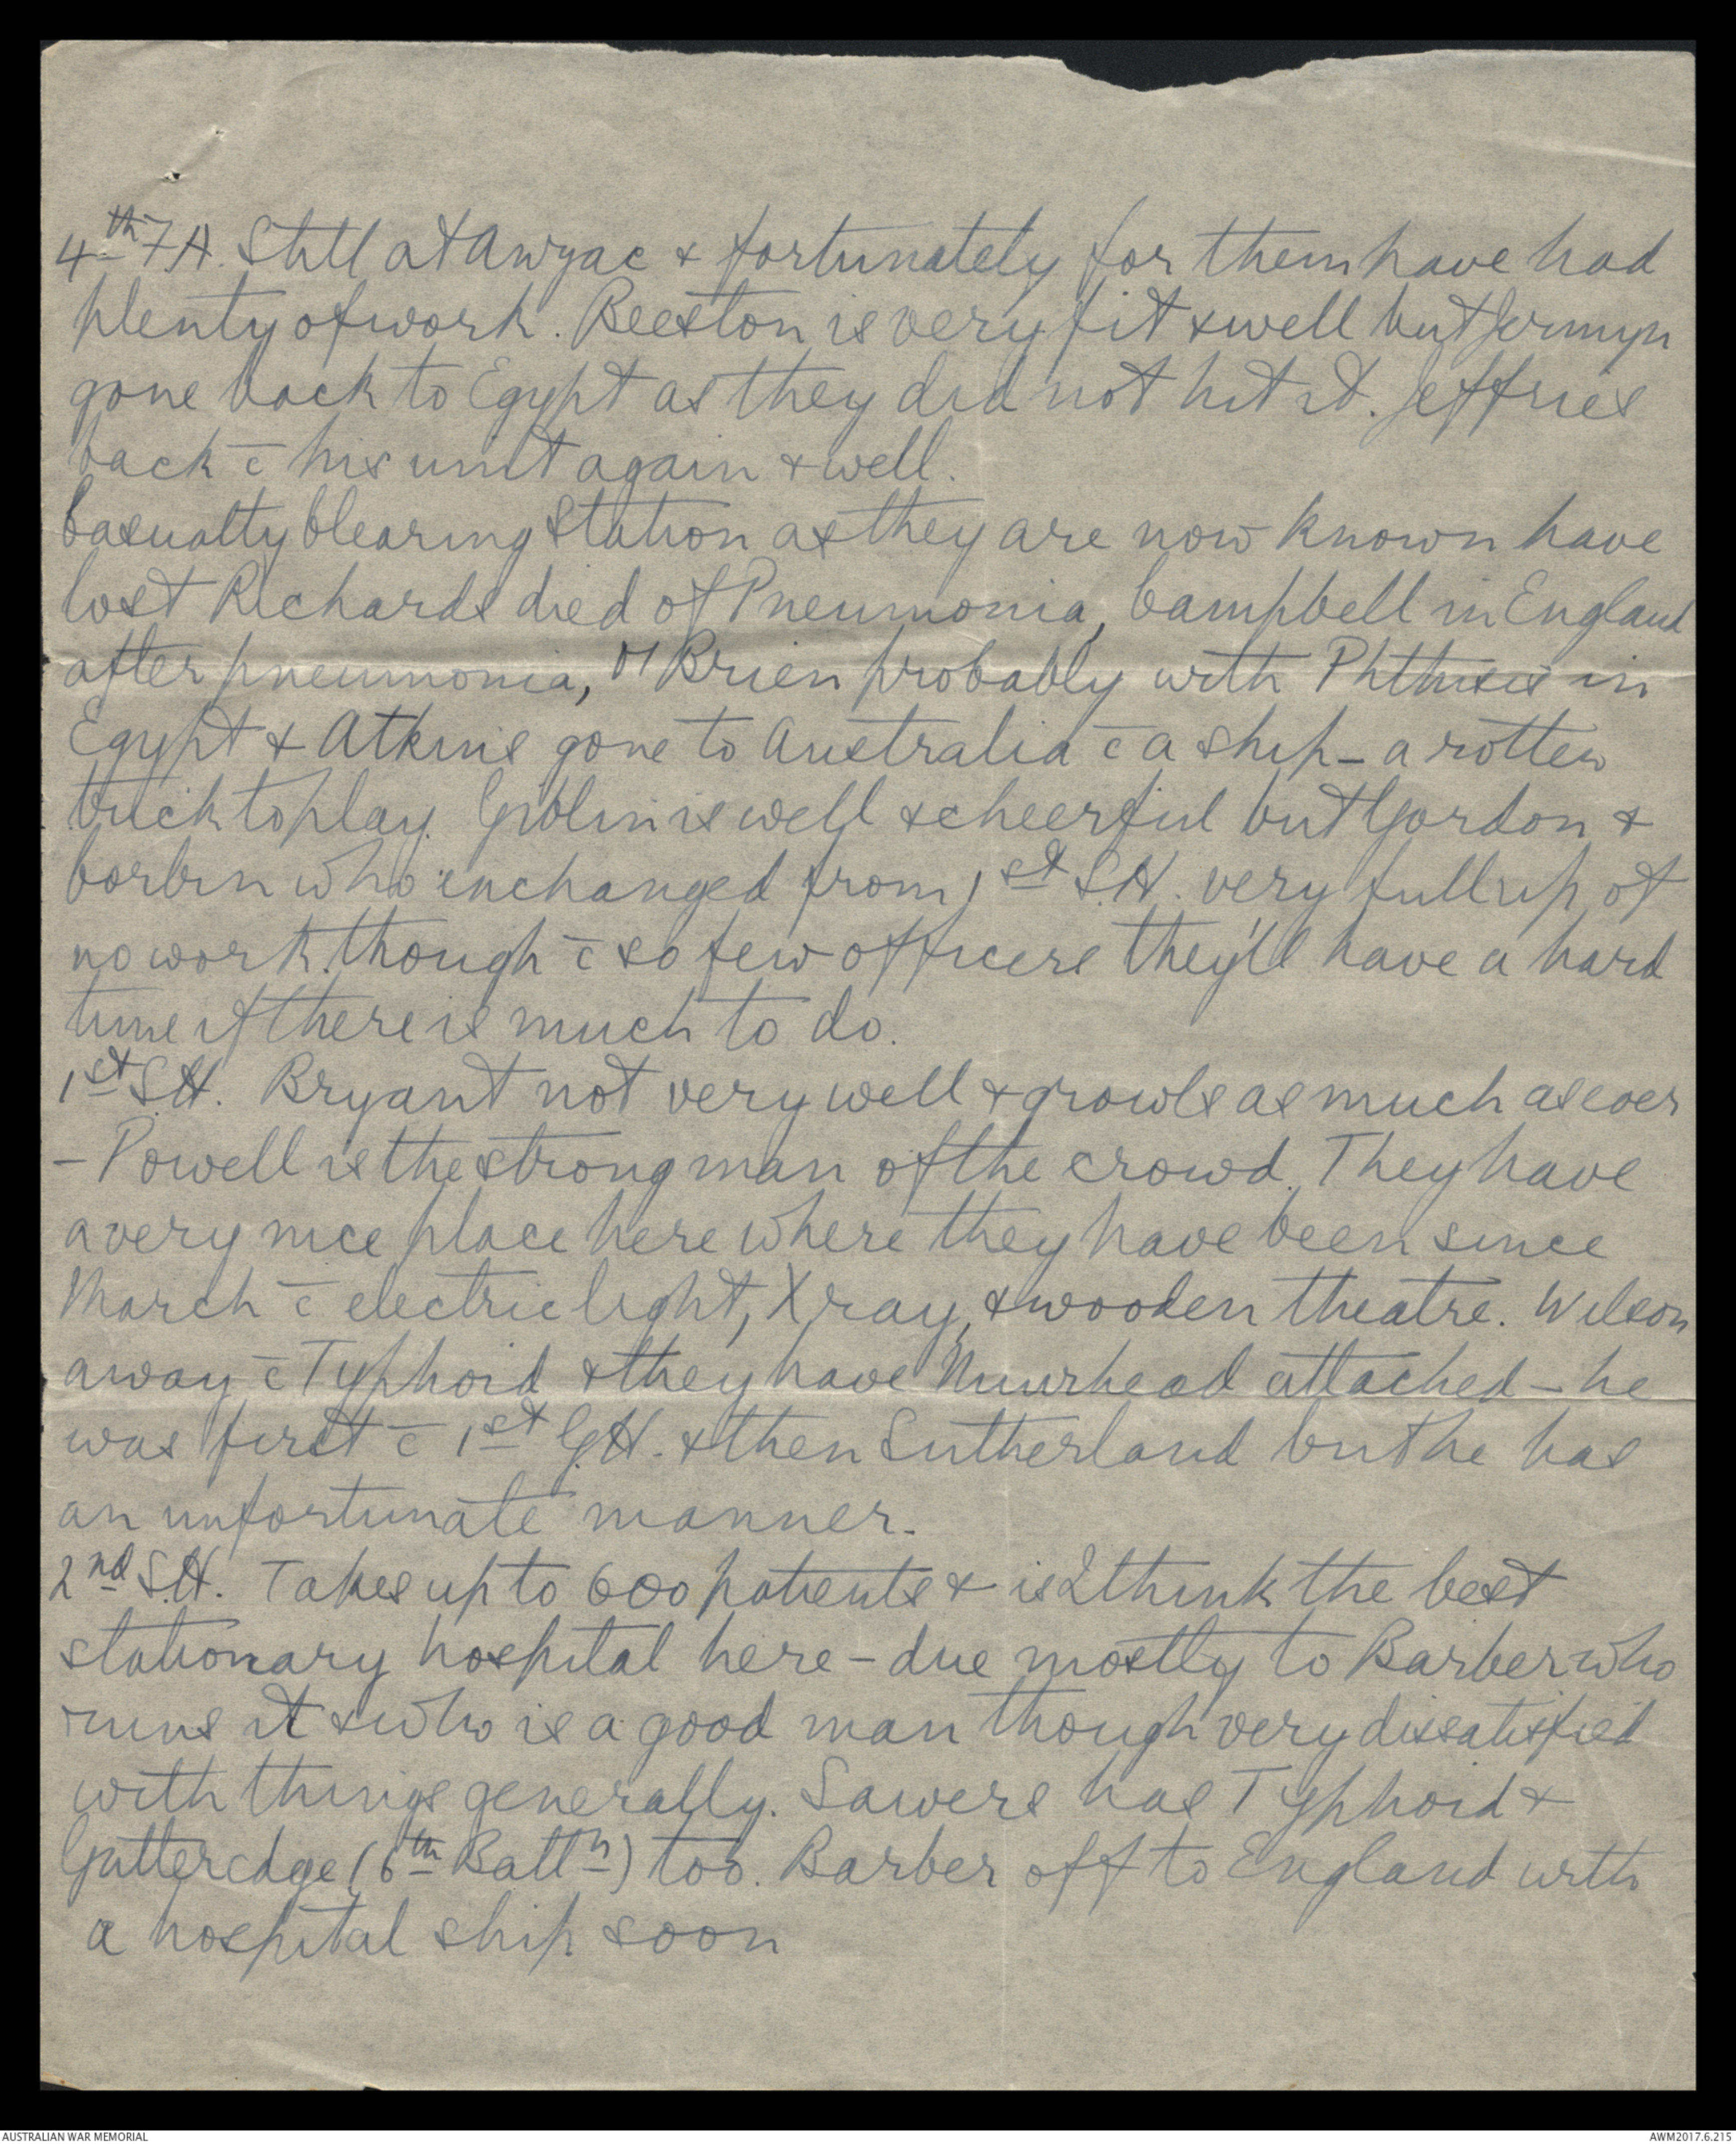 4th F.A. Still at Anzac & fortunately for them have had
plenty of work. Beeston is very fit & well but Jermyn
gone back to Egypt as they did not hit it. Jeffries
back c̄ his unit again & well.
Casualty Clearing Station as they are now known have
lost Richards died of Pneumonia, Campbell in England
after pneumonia, O'Brien probably with Phthisis in
Egypt & Atkins gone to Australia c̄ a ship - a rotten
trick to play. Giblin is well & cheerful but Gordon &
Corbin who exchanged from 1st S.H. very full up of
no work. though c̄ so few officers they'll have a hard
time if there is much to do.
1st S.H. Bryant not very well & growls as much as ever
- Powell is the strong man of the crowd. They have
a very nice place here where they have been since
March c̄ electric light, X ray, & wooden theatre. Wilson
away c̄ Typhoid & they have Muirhead attached - he
was first c̄ 1st G.H. & then Sutherland but he has
an unfortunate manner.
2nd S.H. Takes up to 600 patients & is I think the best
stationary hospital here - due mostly to Barber who
runs it & who is a good man though very dissatisfied
with things generally. Sawers has Typhoid &
Gutteredge (6th Battn) too. Barber off to England with
a hospital ship soon
AUSTRALIAN WAR MEMORIAL
AWM2017.6.215